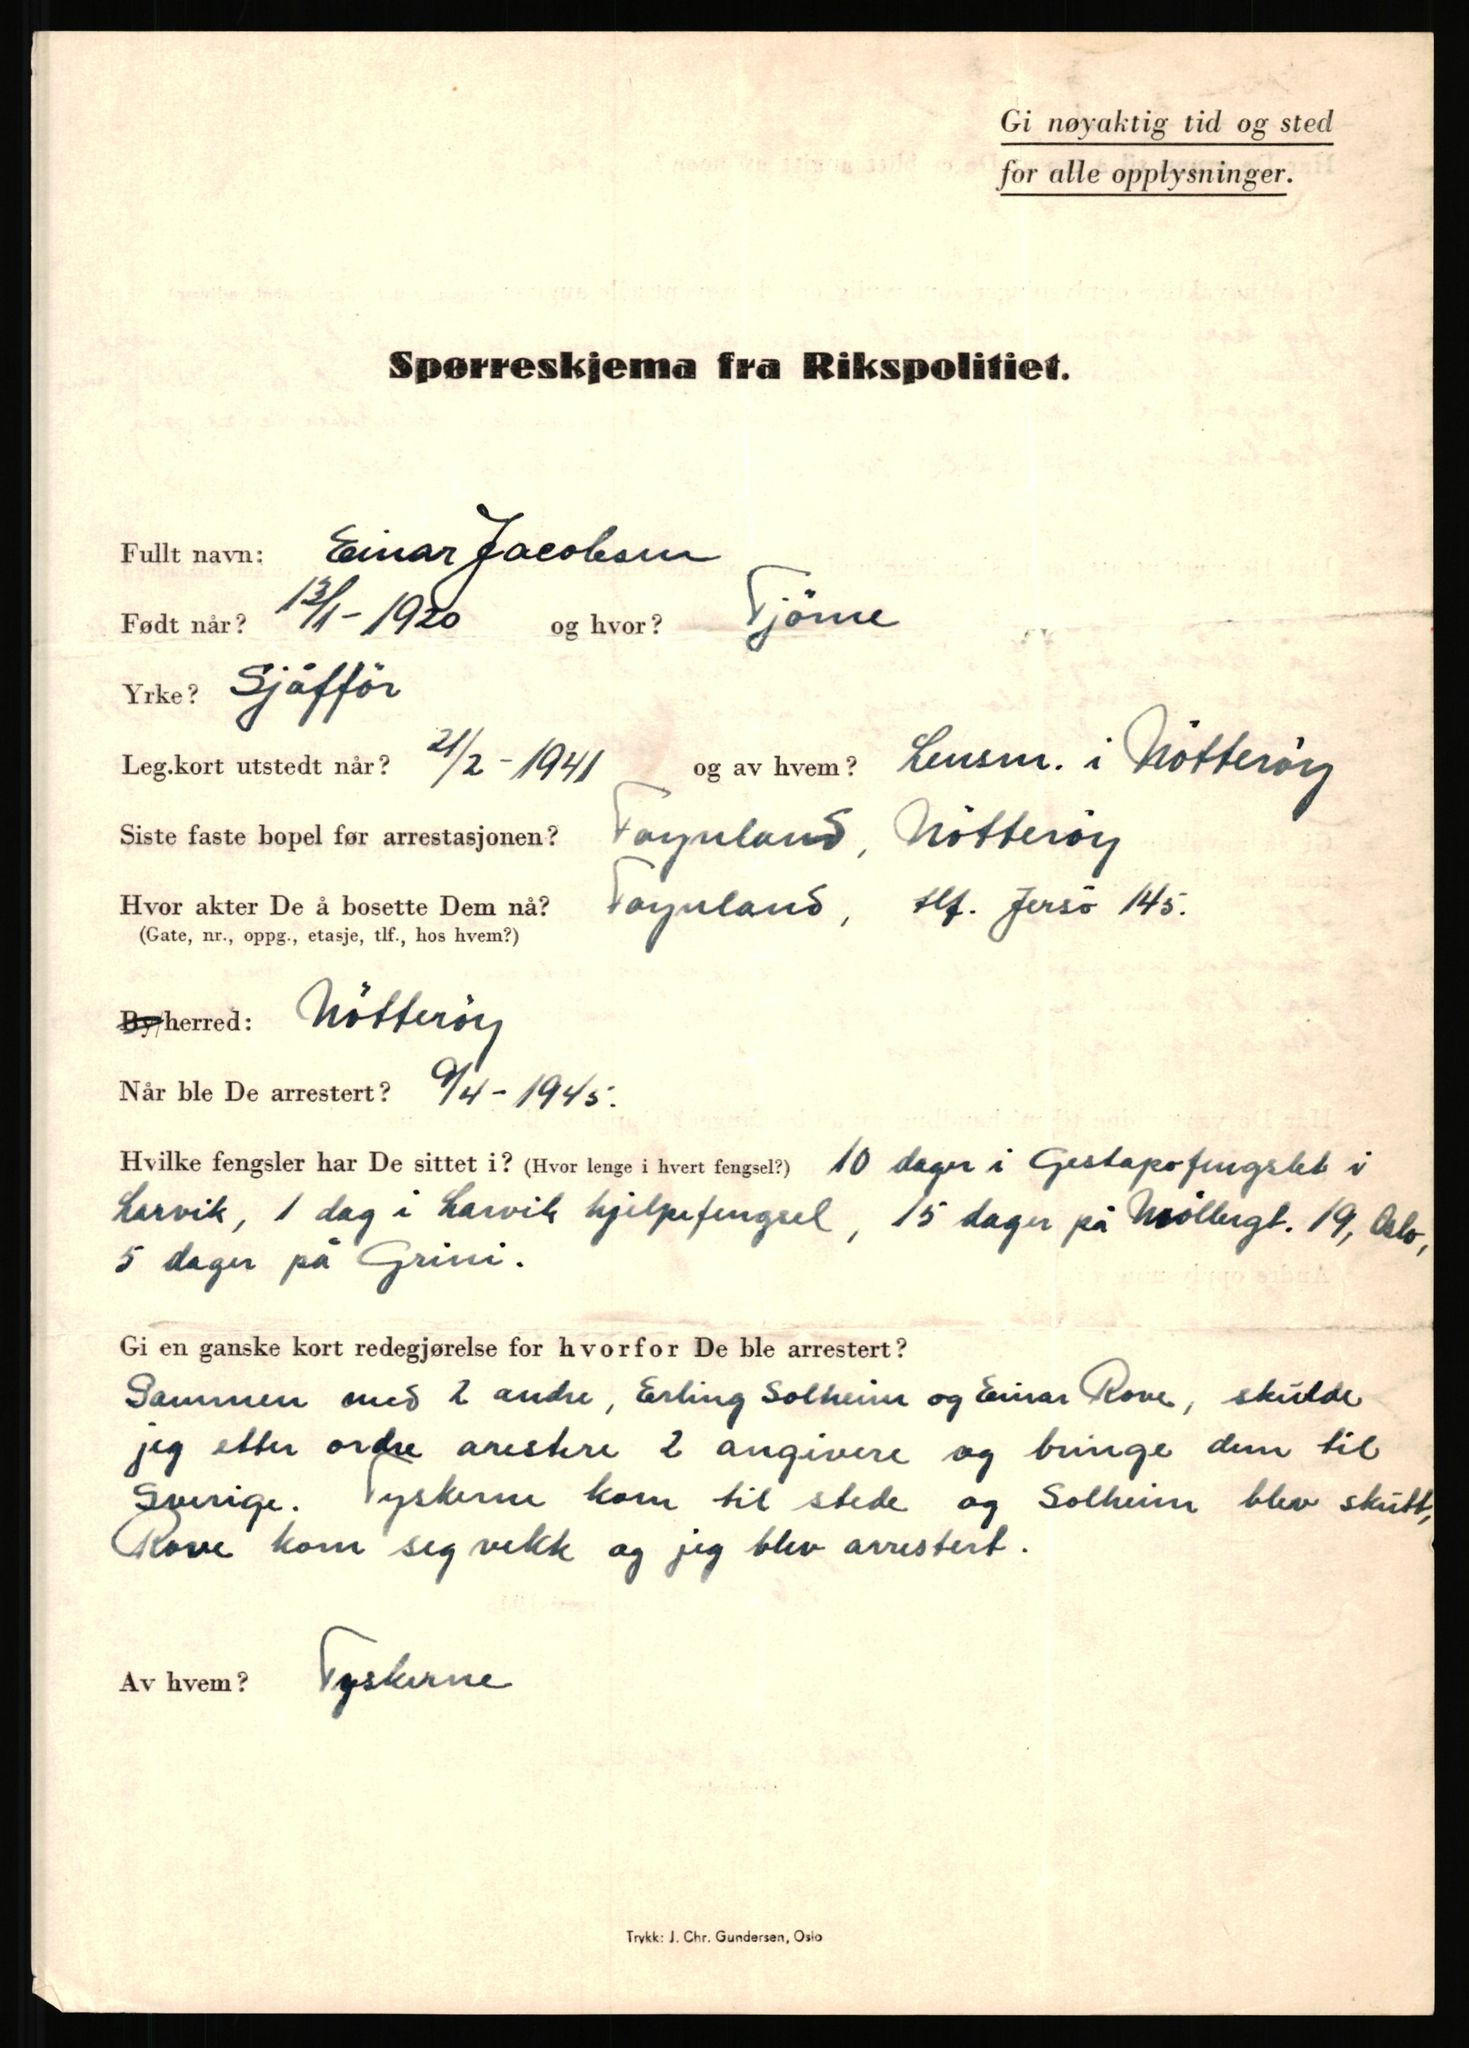 Gi nøyaktig tid og sted
for alle opplysninger.
Spørreskjema fra Rikspolitiet.
Fullt navn: Einar Jacobsen
Født når? 13/1 - 1920 og hvor? Tjöme
Yrke? Sjåfför
Leg.kort utstedt når? 21/2 - 1941 og av hvem? Lensm. i Nötteröy
Siste faste bopel før arrestasjonen? Föynland, Nötteröy
Hvor akter De å bosette Dem nå? Föynland, tlf. Jersö 145.
(Gate, nr., oppg., etasje, tlf., hos hvem?)
By/herred: Nötteröy
Når ble De arrestert? 9/4 - 1945.
Hvilke fengsler har De sittet i? (Hvor lenge i hvert fengsel?) 10 dager i Gestapofengslet i
Larvik, 1 dag i Larvik hjelpefengsel, 15 dager på Möllergt. 19, Oslo,
5 dager på Grini.
Gi en ganske kort redegjørelse for hvorfor De ble arrestert?
Sammen med 2 andre, Erling Solheim og Einar Rove, skulde
jeg etter ordre arestere 2 angivere og bringe dem til
Sverige. Tyskerne kom til stede og Solheim blev skutt,
Rove kom seg vekk og jeg blev arrestert.
Av hvem? Tyskerne
Trykk: J. Chr. Gundersen, Oslo